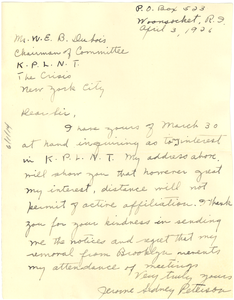 P.O. Box 523
Woonsocket, R.I.
April 3, 1926
Mr. W. E. B. Dubois
Chairman of Committee
K. P. L. N. T.
The Crisis
New York City
Dear Sir,
I have yours of March 30
at hand inquiring as to interest
in K. P. L. N. T. My address above
will show you that however great
my interest, distance will not
permit of active affiliation. I thank
you for your kindness in sending
me the notices and regret that my
removal from Brooklyn prevents
my attendance of meetings
Very truly yours
Jerome Sidney Peterson